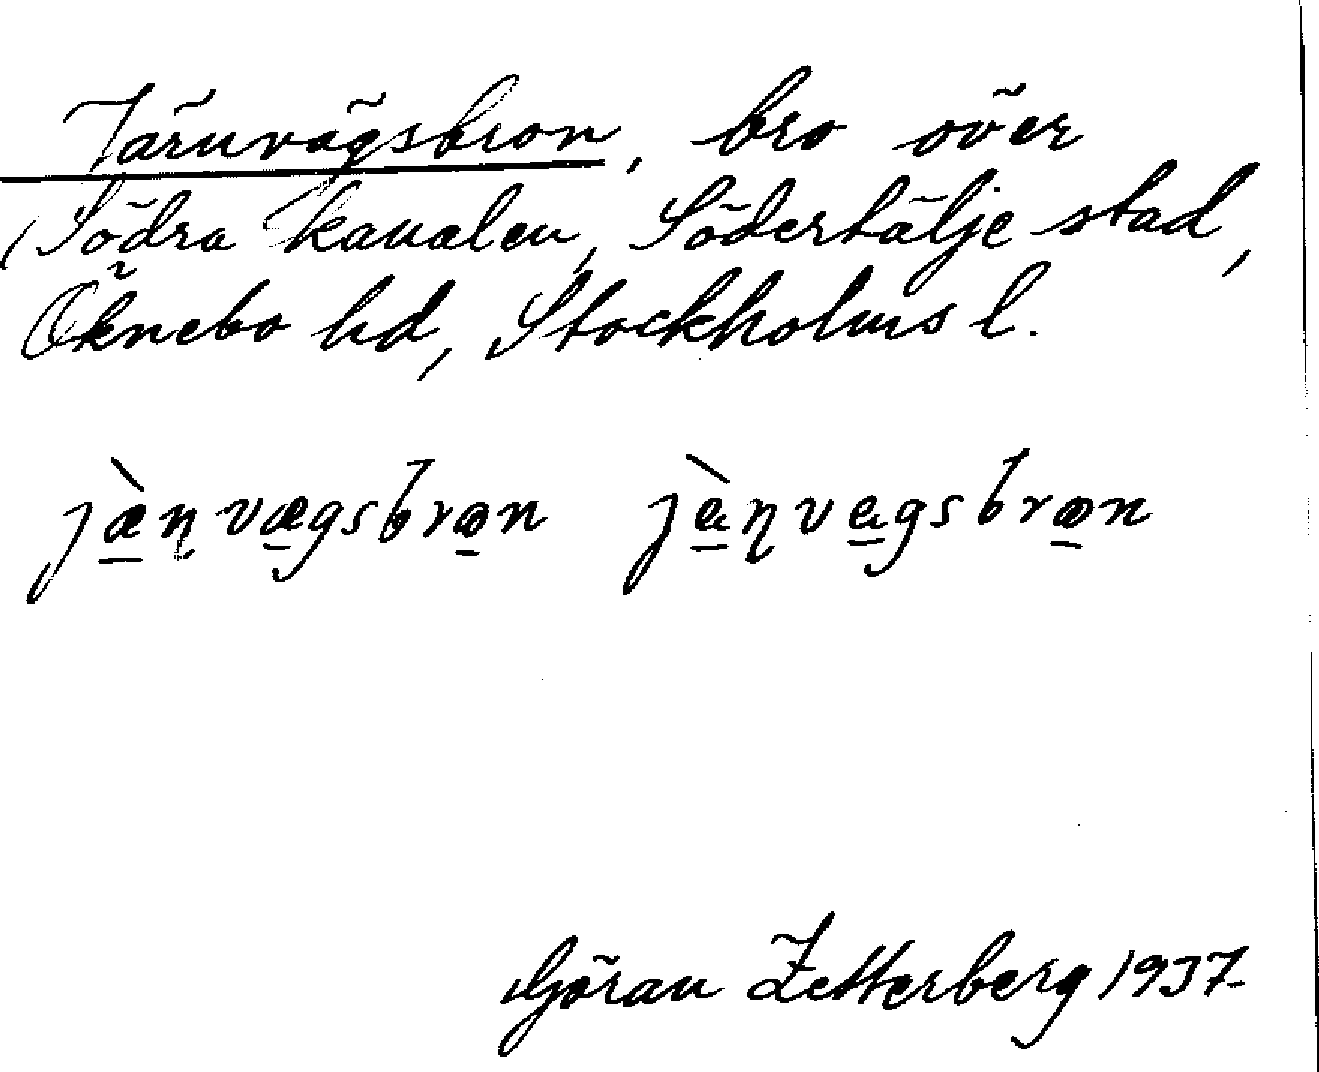 Järnvägsbron, bro över
Södra kanalen, Södertälje stad,
Öknebo hd, Stockholms l.
jæ̲̀ɳvæ̲gsbro̲n jà̲ɳva̲gsbro̲n
Göran Zetterberg 1937